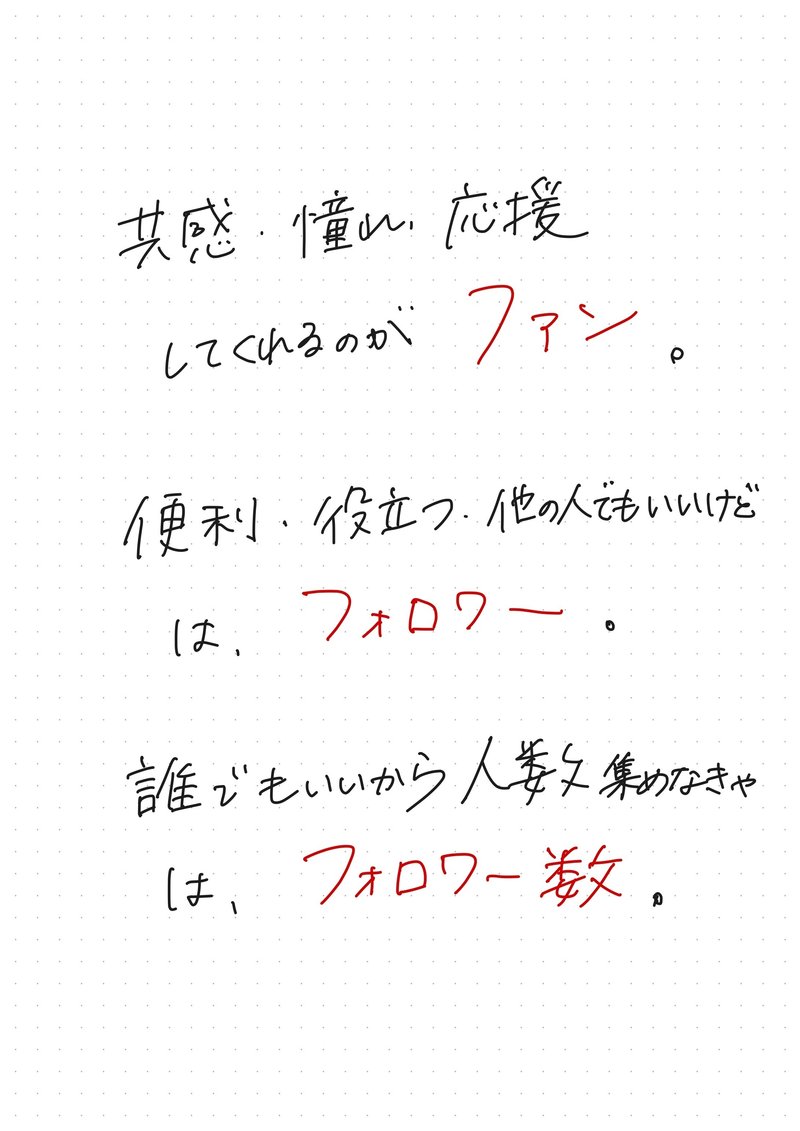 共感・憧れ・応援
してくれるのがファン。
便利・役立つ・他の人でもいいけど
は、フォロワー。
誰でもいいから人数集めなきゃ
は、フォロワー数。